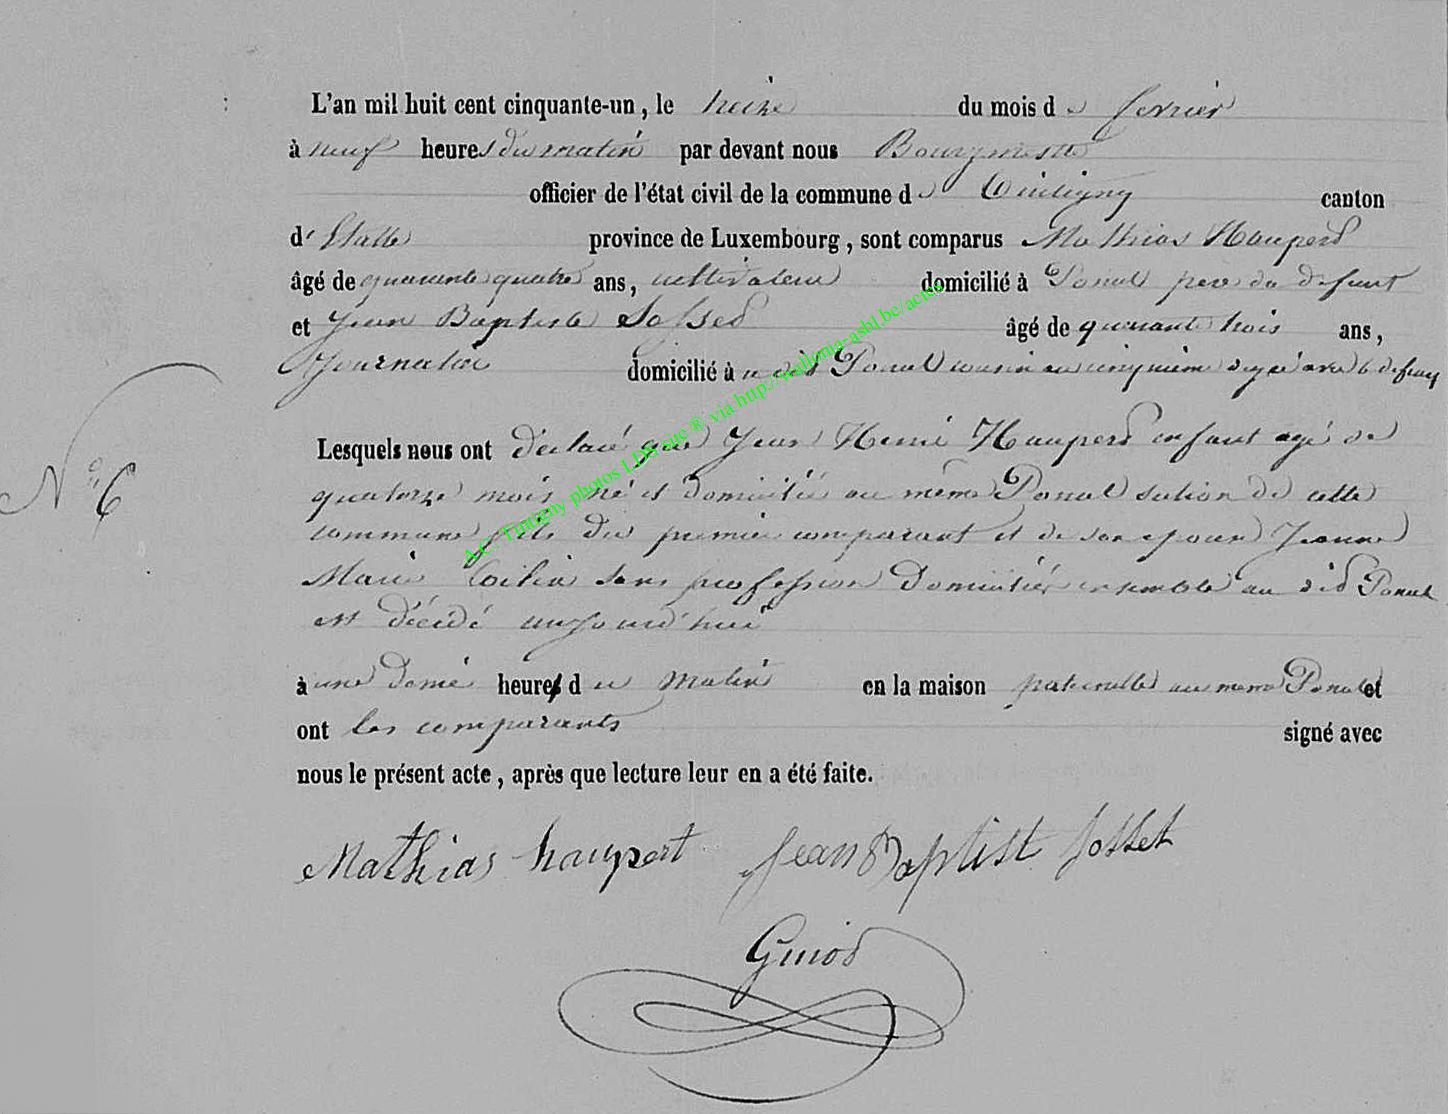 L'an mil huit cent cinquante-un, le treize du mois de fevrier
à neuf heures du matin par devant nous Bourgmestre
officier de l'état civil de la commune de Tintigny canton
d'Etalle province de Luxembourg, sont comparus Mathias Haupert
âgé de quarante quatre ans, cultivateur domicilié à Ponul père du defunt
et Jean Baptiste Josset âgé de quarante trois ans,
Journalier domicilié à u dit Ponul cousin au cinquième degré avec le defunt
N° 6
Lesquels nous ont déclaré que Jean Henri Haupert enfant agé de
quatorze mois né et domicilié au même Ponul section de cette
commune fils du premier comparant et de son epouse Jeanne
Marie sans profession domiciliés ensemble au dit Ponul
est décédé aujourd'hui
à une demie heure du matin en la maison paternelle au meme Ponul et
ont les comparants signé avec
nous le présent acte, après que lecture leur en a été faite.
Mathias haupert Jean Baptist Josset
Guiod
A.C. Tintigny photos LDS suc ® via http://wallonia-asbl.be/actes